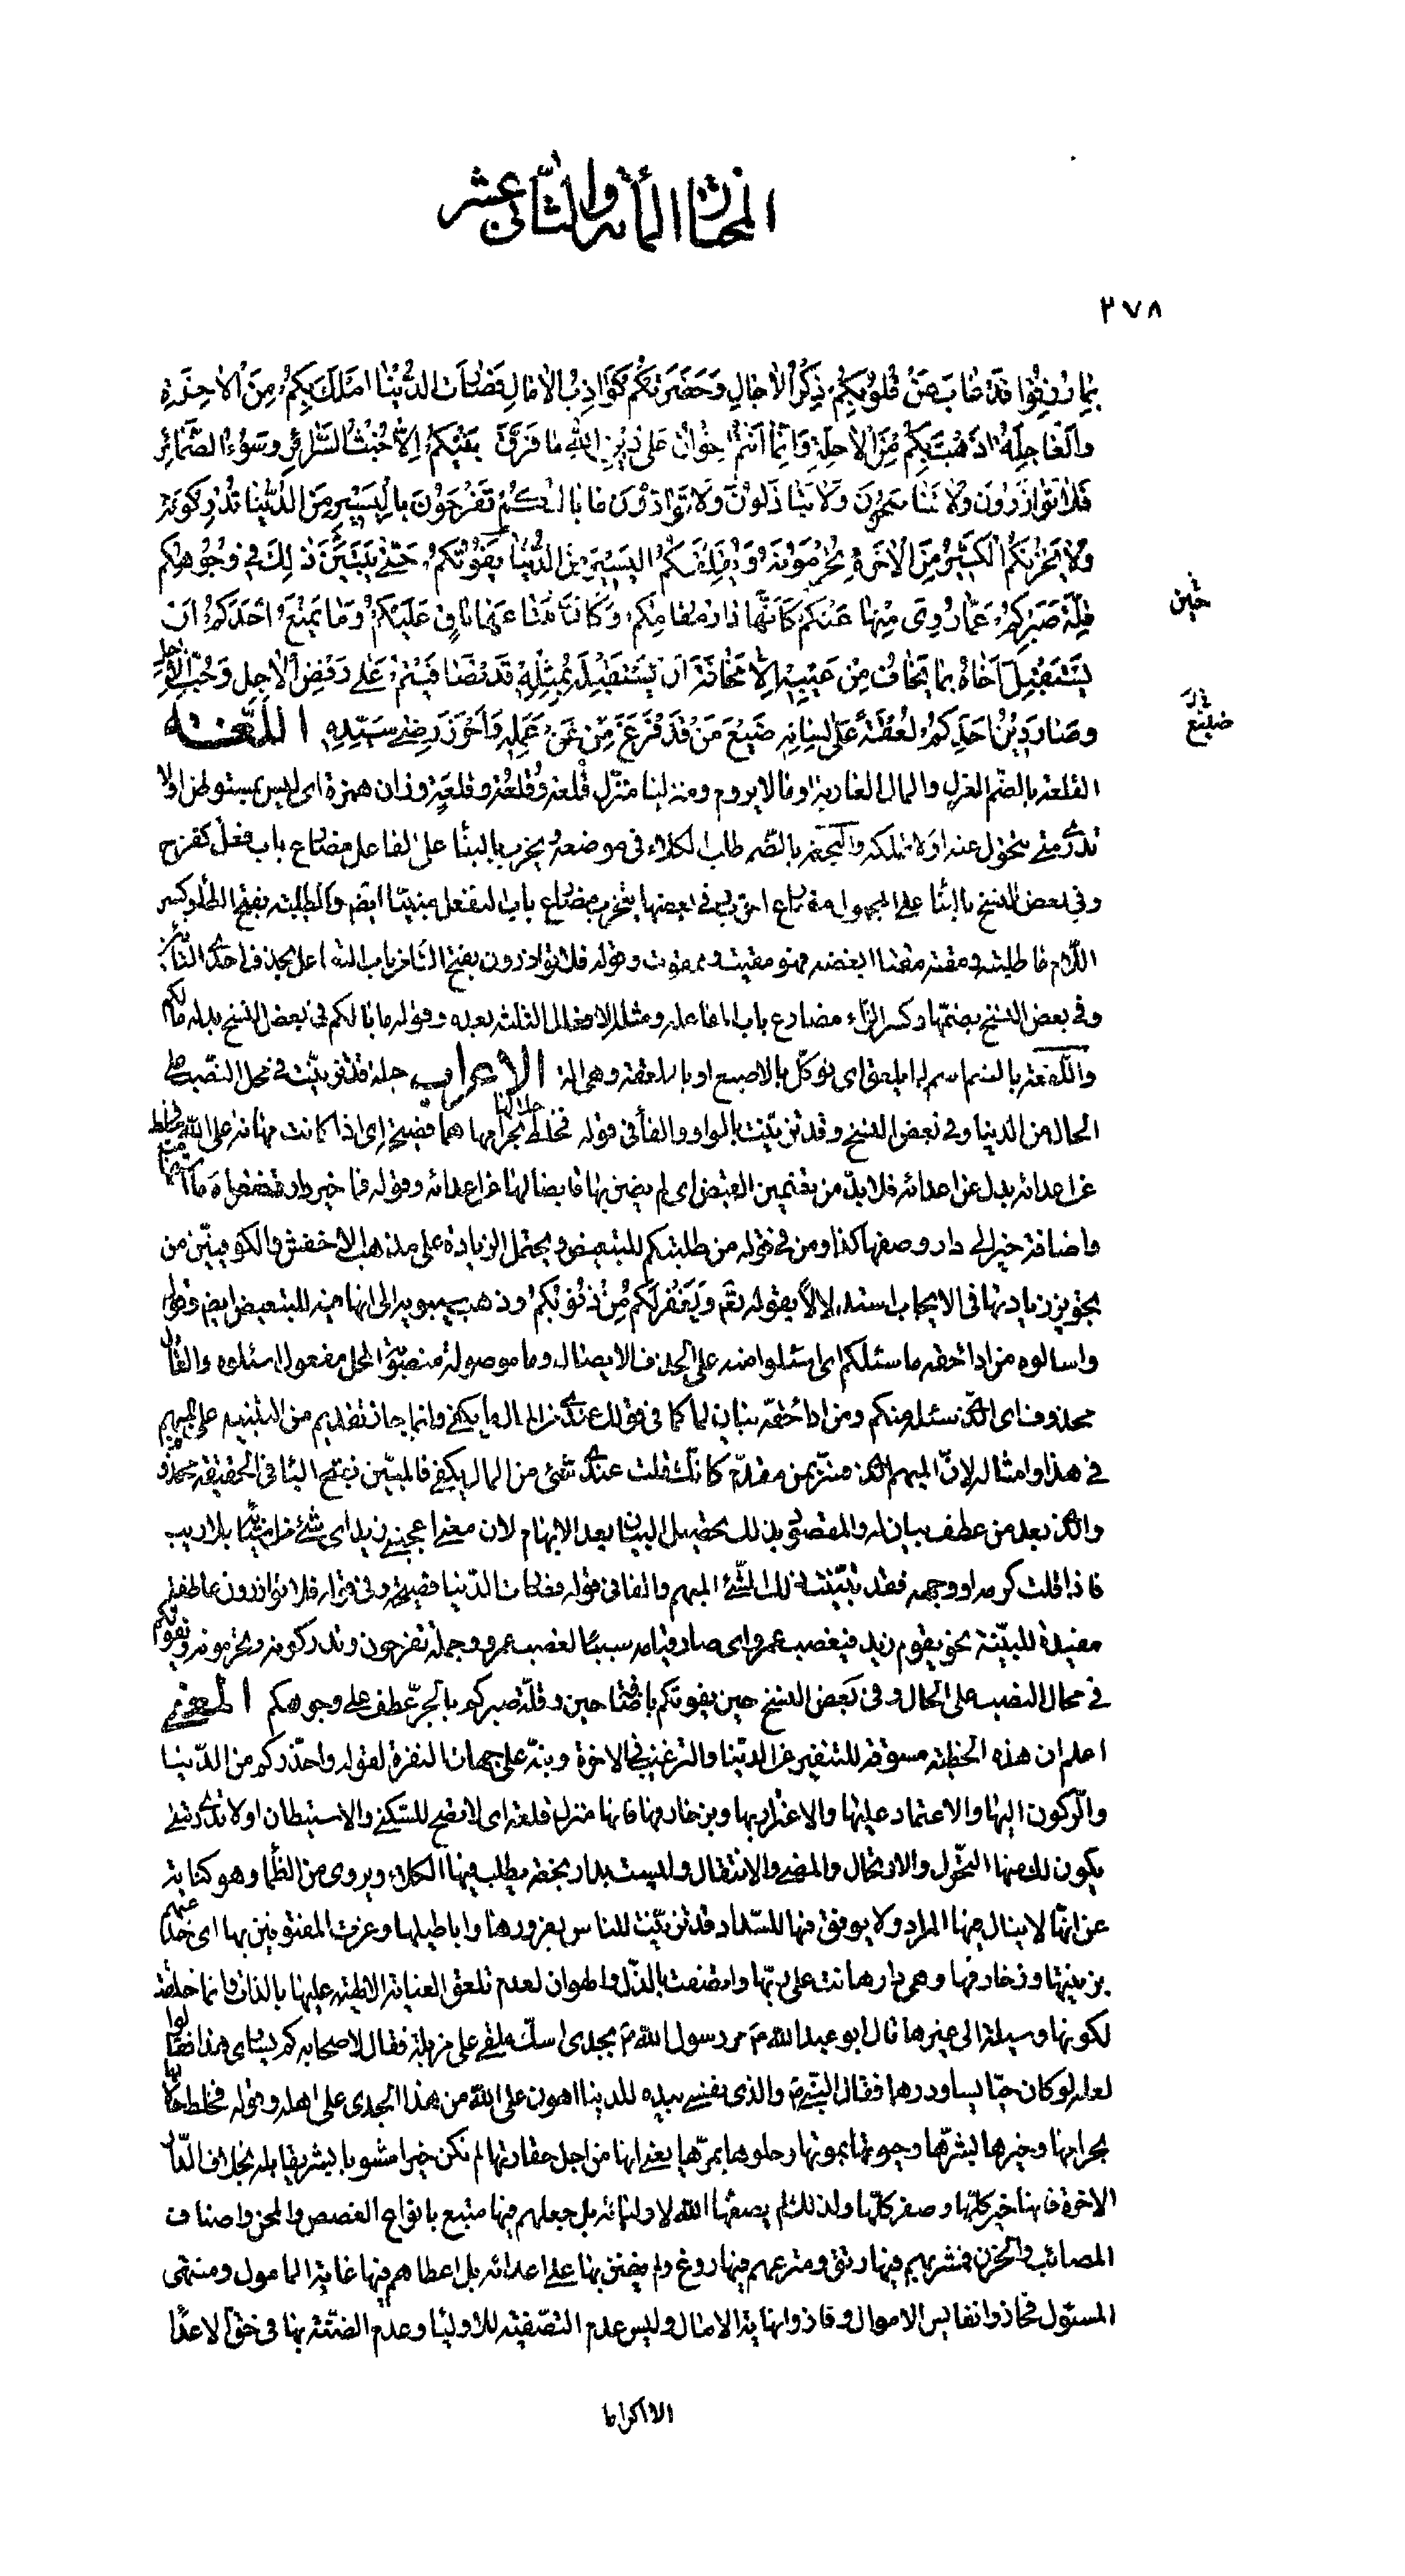 المختار المأة والثاني عشر
٢٧٨
بما رزقوا قد غاب عن قلوبكم ذكر الآجال وحضرتكم كواذب الآمال فصارت الدنيا املك بكم من الآخرة
والعاجلة اذهب بكم من الآجلة وانما انتم اخوان على دين الله ما فرق بينكم الا خبث السرائر وسوء الضمائر
فلا توازرون ولا تناصحون ولا تباذلون ولا توادون ما بالكم تفرحون باليسير من الدنيا تدركونه
ولا يحزنكم الكثير من الآخرة تحرمونه ويقلقكم اليسير من الدنيا يفوتكم حتى يتبين ذلك في وجوهكم
حين
وقلة صبركم عما زوى منها عنكم كانها دار مقامكم وكان متاعها باق عليكم وما يمنع احدكم ان
يستقبل اخاه بما يخاف من عيبه الا مخافة ان يستقبله بمثله قد تصافيتم على رفض الآجل وحب العاجل
وصار دين احدكم لعقة على لسانه صنيع من قد فرغ من عمله واحرز رضى سيده اللغة
صنيع
القلعة بالضم العزل والمال العارية او ما لا يدوم ومنزلنا منزل قلعة وقلعة وقلعة وزان همزة اى ليس بمستوطن او لا
تدرى متى يتحول عنه او لا تملكه والنجعة بالضم طلب الكلاء في موضعه ويخرب بالبناء على الفاعل مضارع باب فعل كفرح
وفي بعض النسخ بالبناء على المجهول مضارع اخرب وفي بعضها يتخرب مضارع باب التفعل مبنيا ايضم والطلبة بفتح الطاء وكسر
اللام ما طلبته ومقته مقتا ابغضه فهو مقيت وممقوت وقوله فلا توازرون بفتح التاء من باب التفاعل بحذف احدى التائين
وفي بعض النسخ بضمها وكسر الزاء مضارع باب المفاعلة ومثله الافعال الثلثة بعده وقوله ما بالكم في بعض النسخ بدله مالكم
واللعقة بالضم اسم لما يلعق اى يؤكل بالاصبع او بالملعقة وهى الة الاعراب جملة قد تزينت في محل النصب على
الحال من الدنيا وفي بعض النسخ وقد تزينت بالواو والفاء في قوله فخلط حلالها بحرامها هما فصيحة اى اذا كانت مهانة على الله فخلط
عن اعدائه بدل عن اعدائه فلابد من تضمين القبض اى لم يضن بها قابضا لها عن اعدائه وقوله فما خير دار تنقض
واضافة خير الى دار وصفها كذا ومن في قوله من طلبتكم للتبعيض ويحتمل الزيادة على مذهب الاخفش والكوفيين من
تجويز زيادتها في الايجاب استدلالا بقوله تعم ويغفر لكم من ذنوبكم وذهب سيبويه الى انها فيه للتبعيض ايضم وقوله
واسالوه من اداء حقه ما سئلكم اى اسئلوا منه على الحذف والايصال وما موصولة منصوبة المحل مفعول اسئلوه والعائد
محذوف اى الذى سئله منكم ومن اداء حقه بيان لما كما في قولك عندى من المال ما يكفى وانما جاز تقديم من المبينة على المبهم
في هذا وامثاله لان المبهم الذى فسر بمن مقدم كانك قلت عندى شىء من المال يكفى فالمبين بفتح الياء في الحقيقة محذوف
والذى بعد من عطف بيان له والمقصود بذلك تحصيل البيان بعد الابهام لان معنى اعجبنى زيد اى شىء من اشياء زيد بلا ريب
فاذا قلت كرمه او وجهه فقد تبينت ذلك الشىء المبهم والفاء في قوله فصارت الدنيا فصيحة وفي قوله فلا توازرون عاطفة
مفيدة للسببية نحو يقوم زيد فيغضب عمرو اى صار قيامه سببا لغضب عمرو وجملة تفرحون وتدركونه وتحرمونه ويفوتكم
في محال النصب على الحال وفي بعض النسخ حين يفوتكم باضافة حين وقلة صبركم بالجر عطف على وجوهكم المعنى
اعلم ان هذه الخطبة مسوقة للتنفير عن الدنيا والترغيب في الآخرة ونبه على جهات النفرة بقوله واحذركم من الدنيا
والركون اليها والاعتماد عليها والاغترار بها وبزخارفها فانها منزل قلعة اى لا تصلح للسكنى والاستيطان او لا تدرى متى
يكون لك منها التحول والارتحال والمضى والانتقال وليست بدار نجعة يطلب فيها الكلاء ويروى من الظماء وهو كناية
عن انها لا ينال منها المراد ولا يوفق فيها للسداد قد تزينت للناس بغرورها واباطيلها وغرت المفتونين بها اى خدعتهم
بزينتها وزخارفها وهى دارها نت على ربها واتصفت بالذل والهوان لعدم تعلق العناية الالهية عليها بالذات وانما خلقت
لكونها وسيلة الى غيرها قال ابو عبد الله ع مر رسول الله ص بجدى اسك ملقى على مزبلة فقال لاصحابه كم يساوى هذا فقالوا
لعله لو كان حيا لم يساو درهما فقال النبي ص والذى نفسي بيده للدنيا اهون على الله من هذا الجدى على اهله وقوله فخلط حلالها
بحرامها وخيرها بشرها وحيوتها بموتها وحلوها بمرها يعنى انها من اجل حقارتها لم تكن خيرا مشوبا بشر فيها بل بخلاف الدار
الآخرة فانها خير كلها وصفو كلها ولذلك لم يصفها الله لاوليائه بل جعلهم فيها متبع بانواع الغصص والمحن واصناف
المصائب والحزن فمشربهم فيها رنق ومترعهم فيها روغ ولم يضنن بها على اعدائه بل اعطاهم فيها غاية المامول ومنتهى
المسئول فحاذوا نفايس الاموال وفاذوا نهاية الامال وليس عدم التصفية للاولياء وعدم الضنة بها في حق الاعداء
الا اكراما